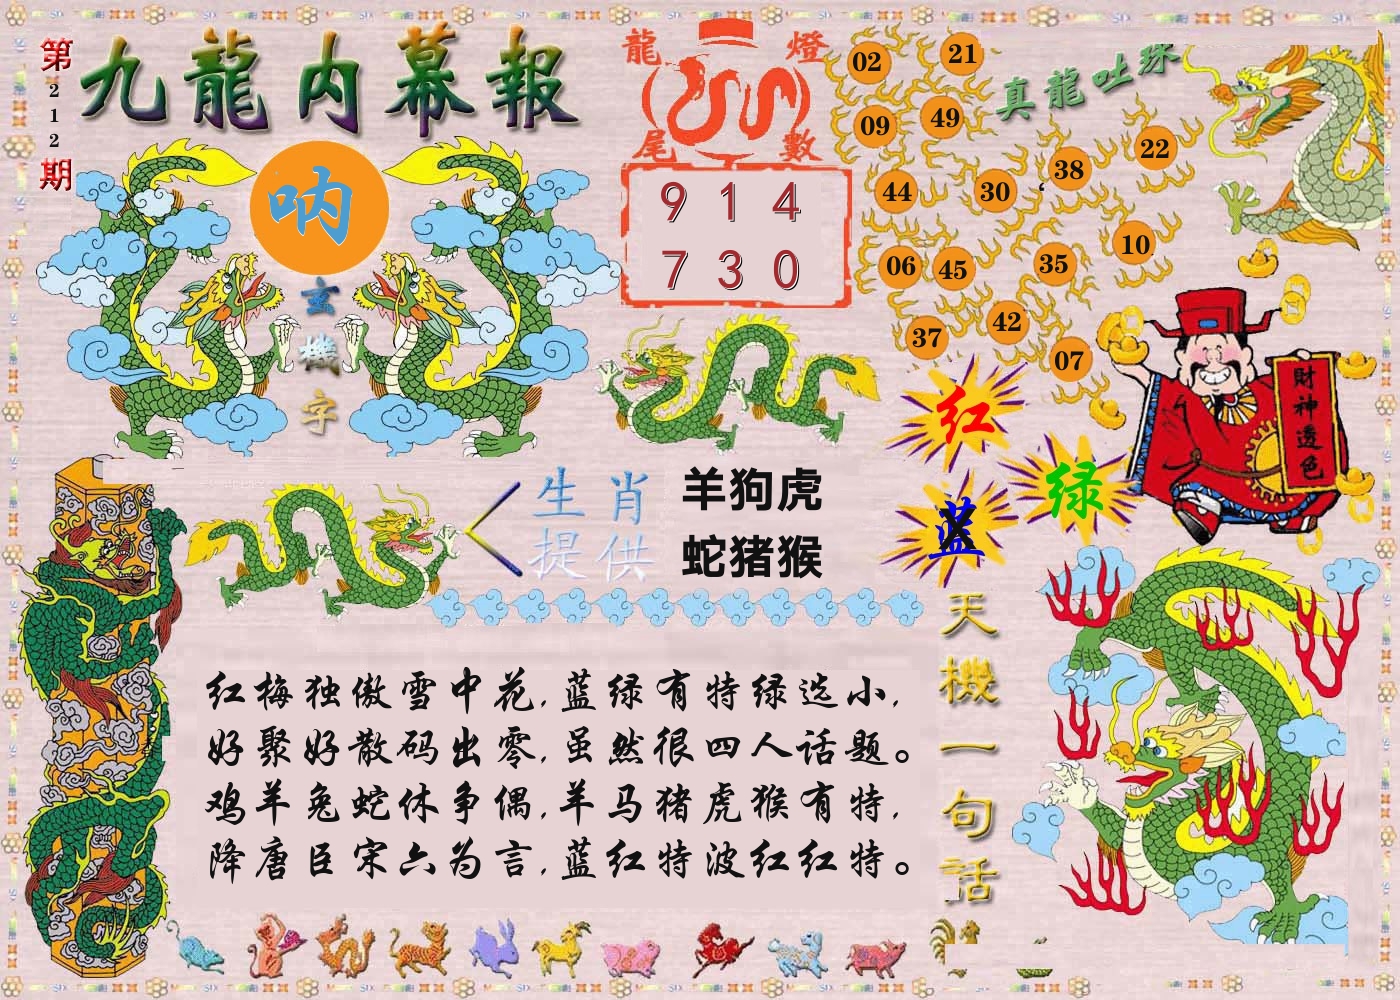 第212期
九龍内幕報
呐
玄機字
龍燈
尾數
9 1 4
7 3 0
真龍吐珠
02
21
09
49
44
30
38
22
06
45
35
10
37
42
07
財神透色
红
绿
蓝
生肖
提供
羊狗虎
蛇猪猴
天機一句話
红梅独傲雪中花,蓝绿有特绿选小,
好聚好散码出零,虽然很四人话题。
鸡羊兔蛇休争偶,羊马猪虎猴有特,
降唐臣宋六为言,蓝红特波红红特。